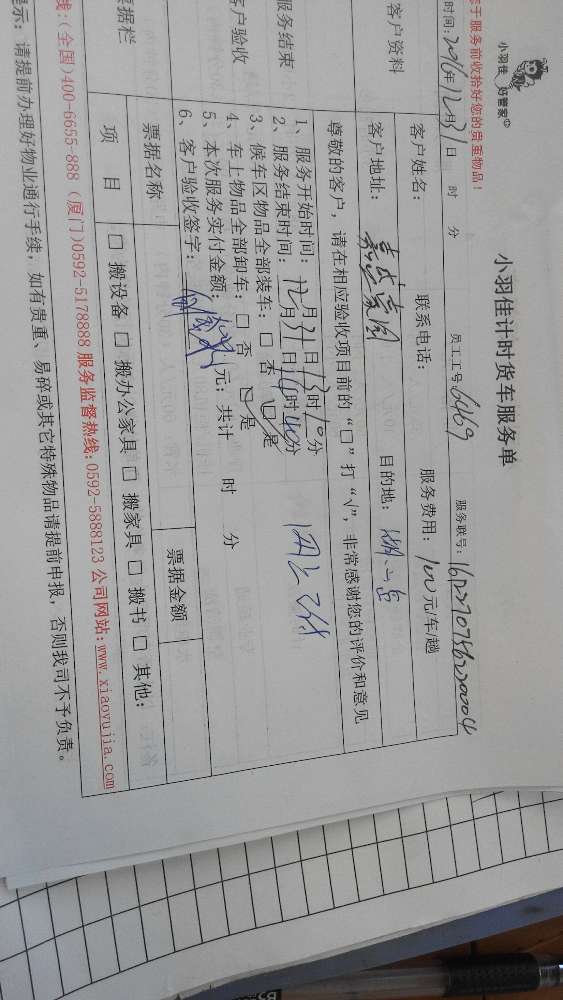 小羽佳 好管家
小羽佳计时货车服务单
您于服务前收拾好您的贵重物品！
时间：2016年12月31日 时 分 员工工号：6469 服务联号：
客户资料
客户姓名： 联系电话： 服务费用：100元/车/趟
客户地址： 目的地：
尊敬的客户，请在相应验收项目前的“□”打“√”，非常感谢您的评价和意见
服务结束
客户验收
1、服务开始时间：12月31日13时10分
2、服务结束时间：12月31日14时40分
3、候车区物品全部装车：□ 否 □ 是
4、车上物品全部卸车：□ 否 □ 是
5、本次服务实付金额： 元；共计 时 分
6、客户验收签字：
票据栏
票据名称 票据金额
项 目 □ 搬设备 □ 搬办公家具 □ 搬家具 □ 搬书 □ 其他：
线：(全国)400-6655-888（厦门)0592-5178888 服务监督热线：0592-5888123 公司网站：www.xiaoyujia.com
示：请提前办理好物业通行手续，如有贵重、易碎或其它特殊物品请提前申报，否则我司不予负责。